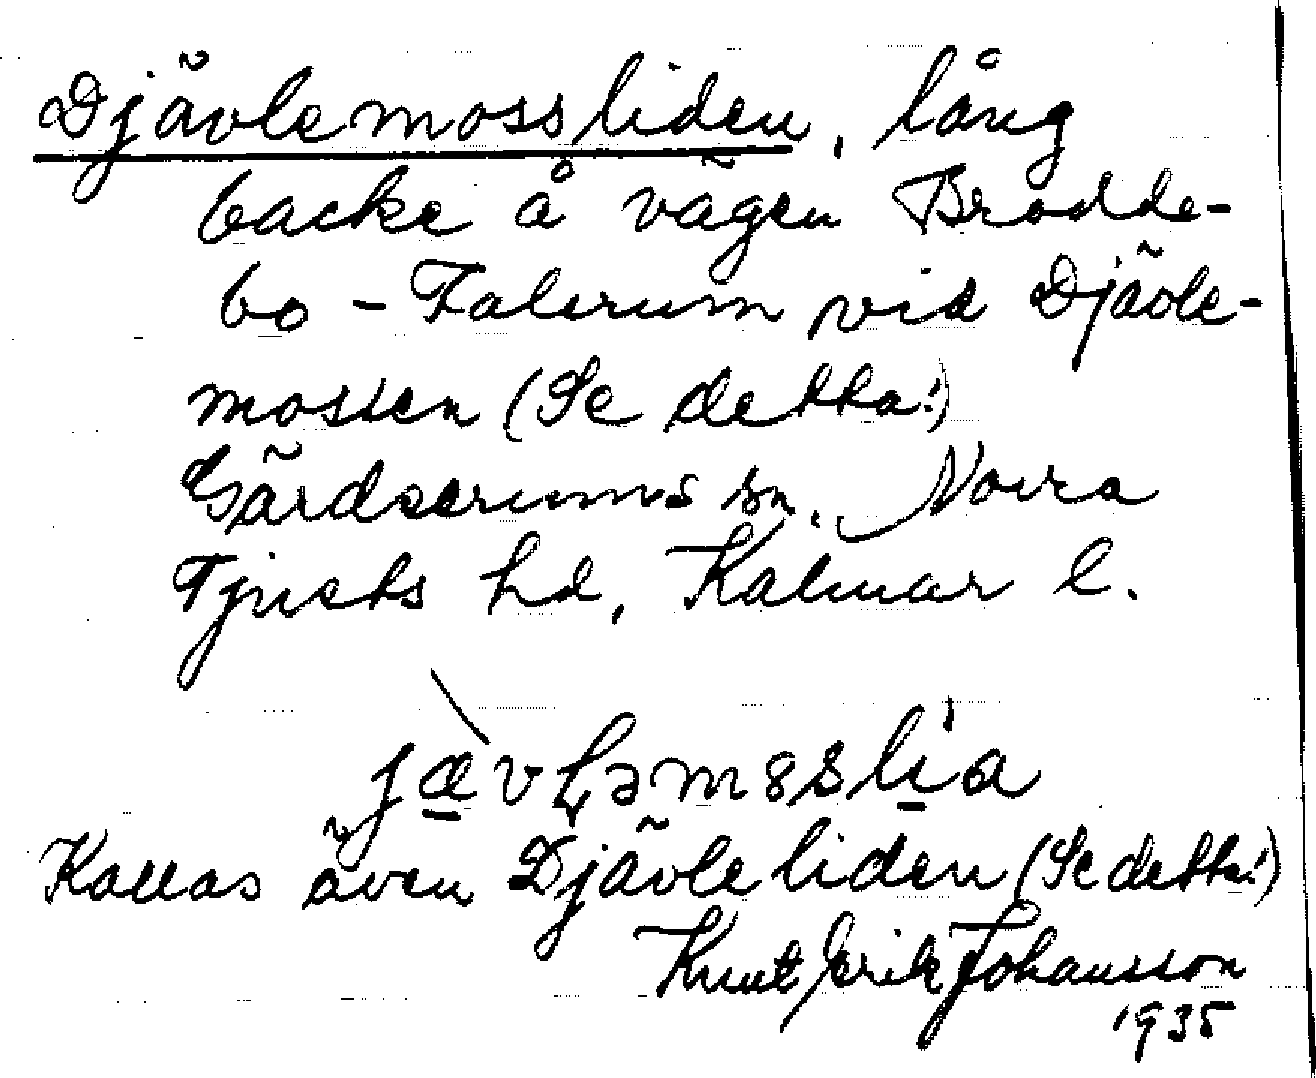 Djävlemossliden, lång
backe å vägen Brodde-
bo - Falerum vid Djävle-
mossen (Se detta!)
Gärdserums sn. Norra
Tjusts hd, Kalmar l.
Kallas även Djävleliden (Se detta!)
Knut Erik Johansson
1935